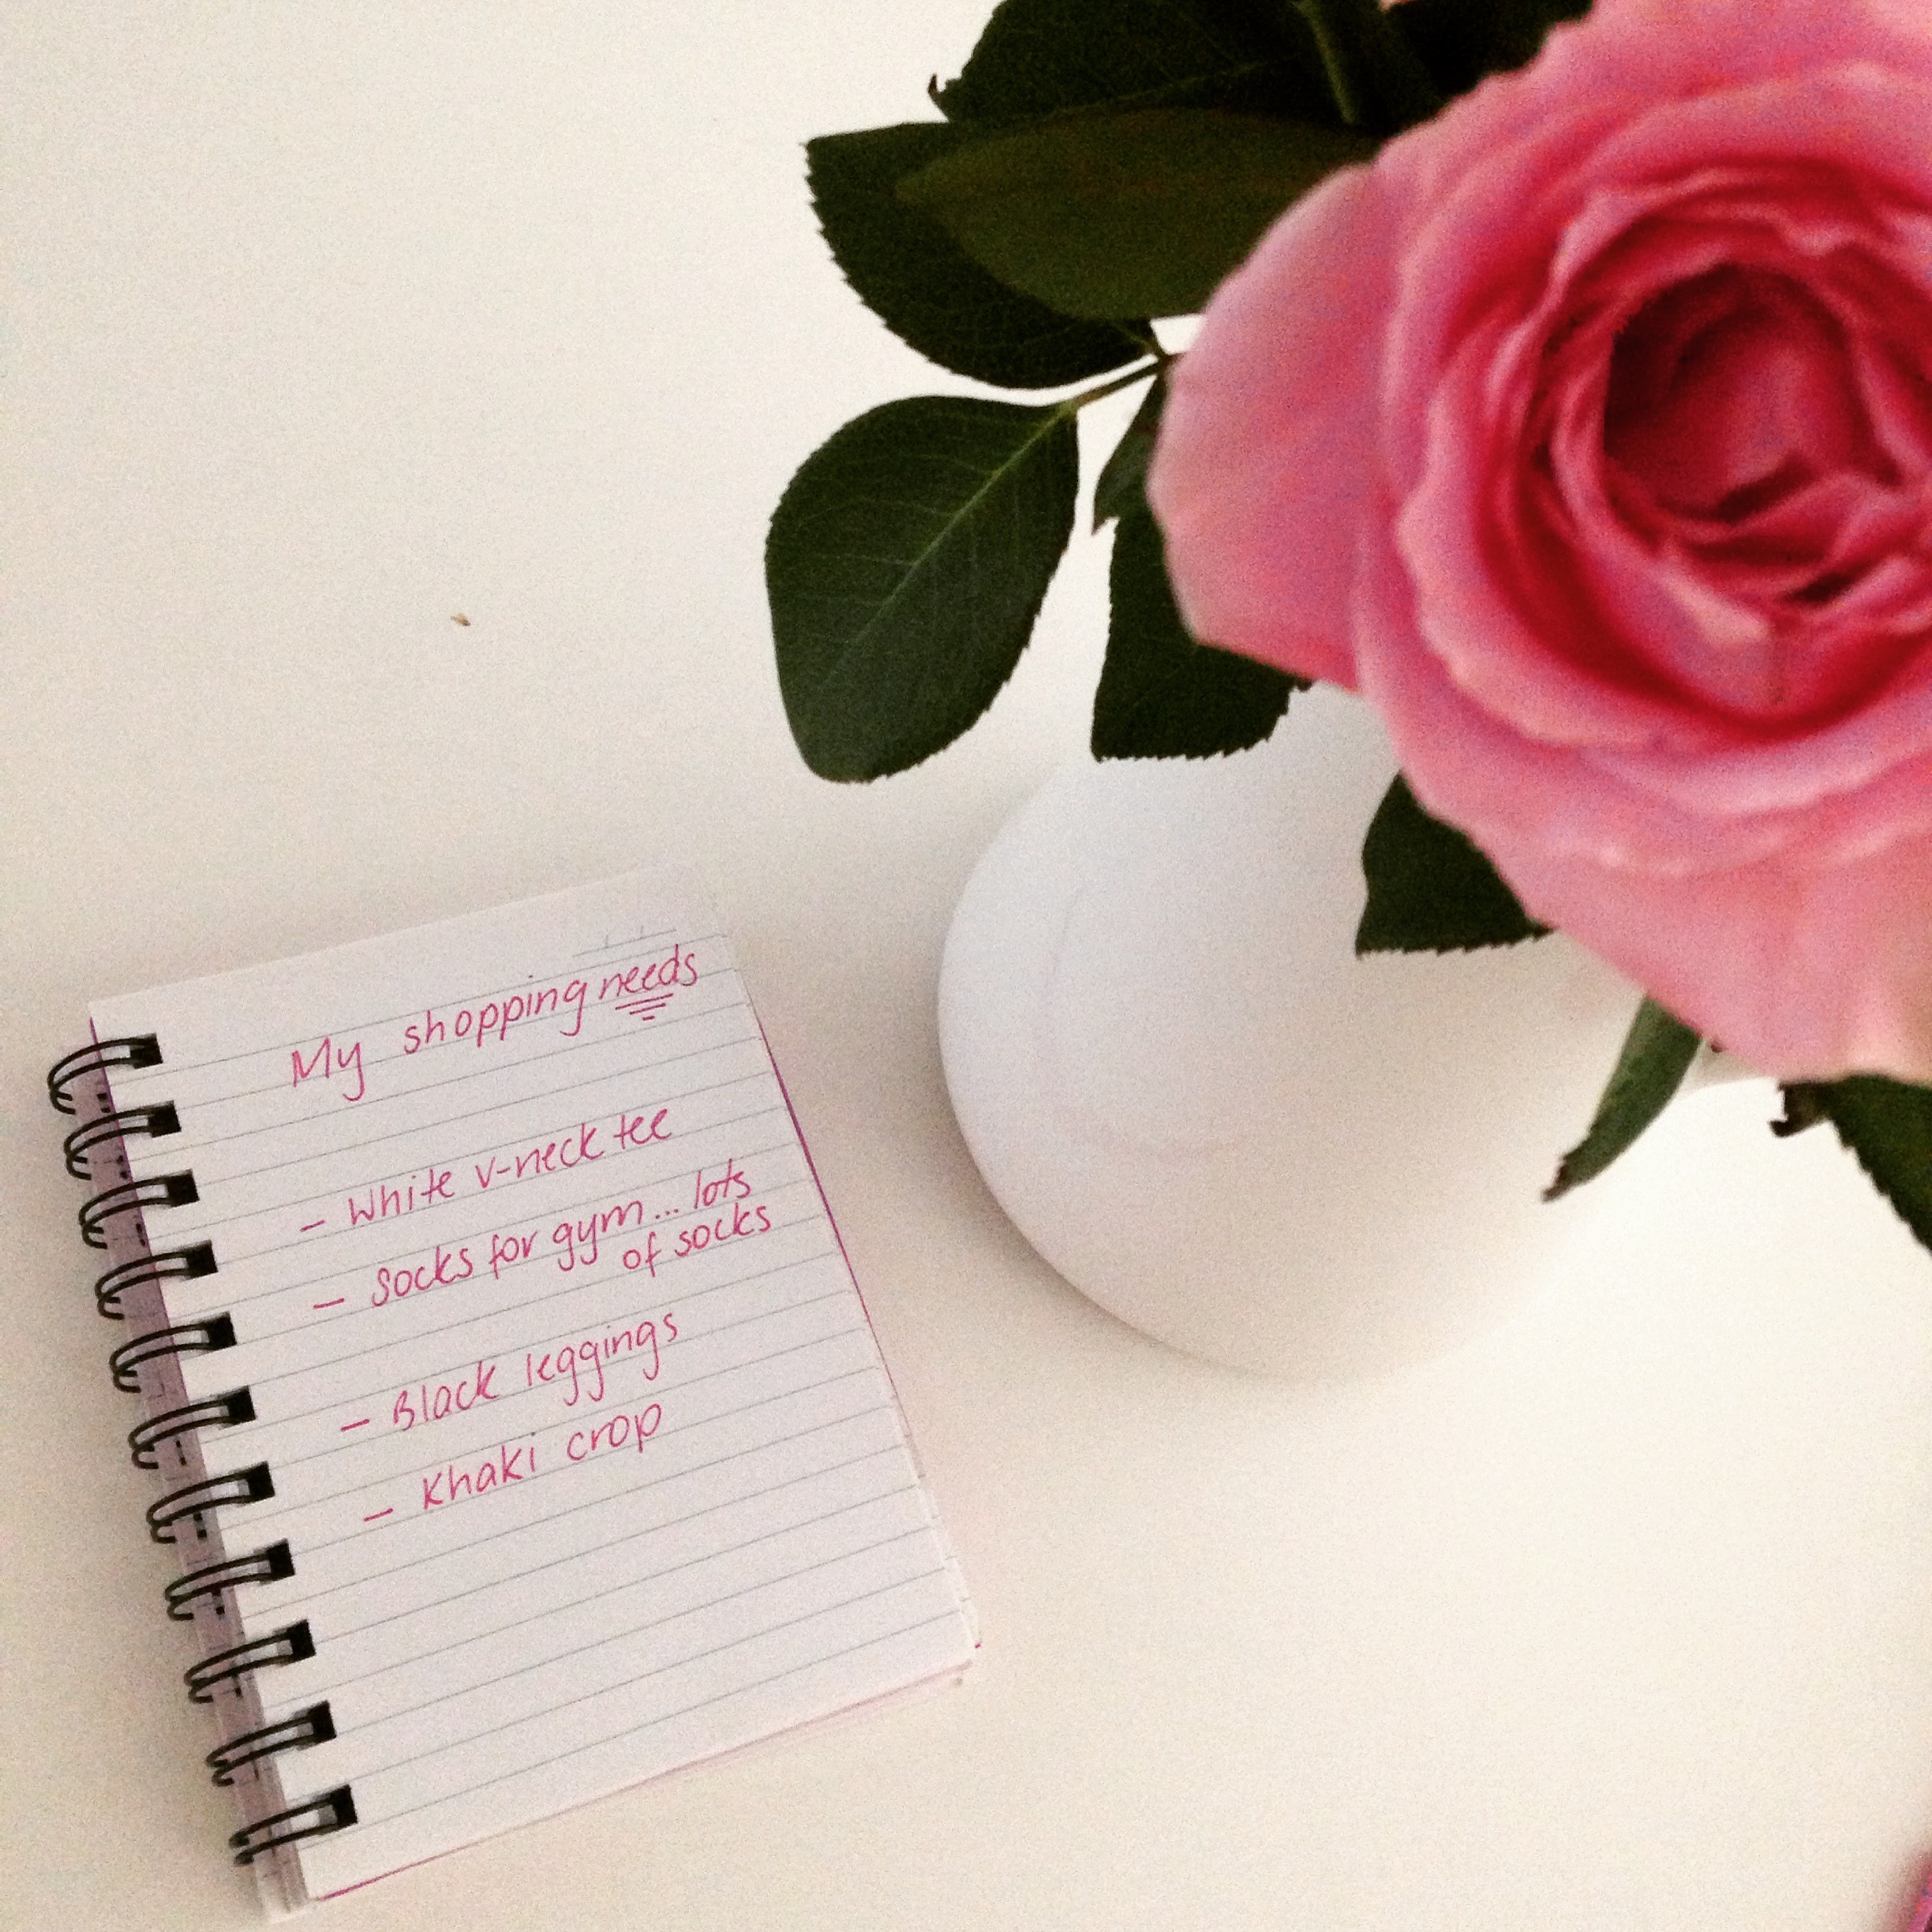 My shopping needs
- White v-neck tee
- Socks for gym... lots
of socks
- Black leggings
- Khaki crop